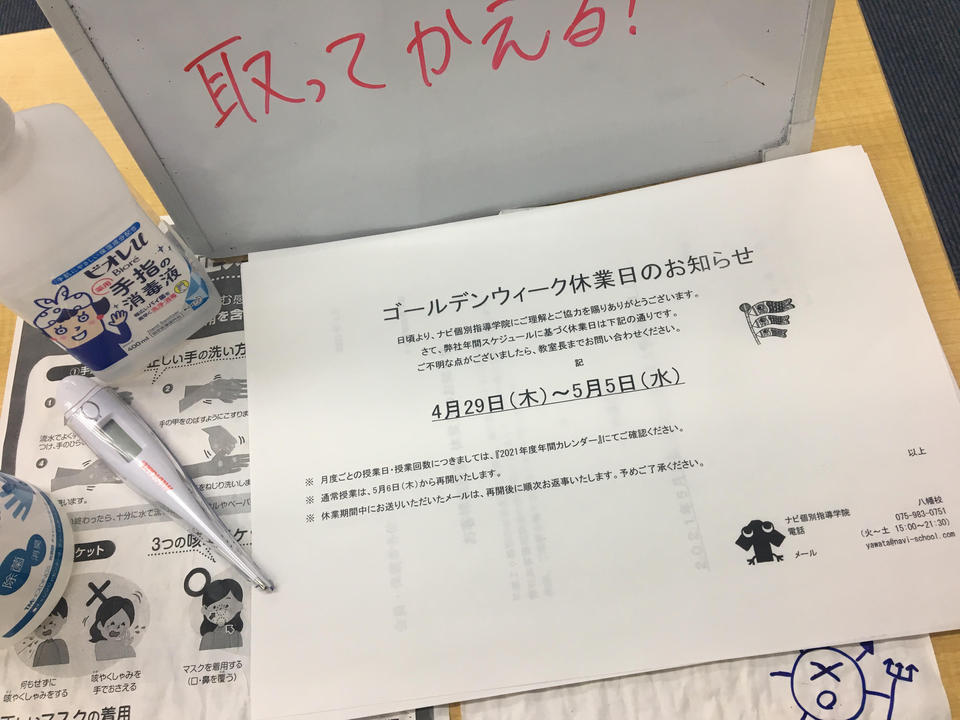 取ってかえる!
ゴールデンウィーク休業日のお知らせ
日頃より、ナビ個別指導学院にご理解とご協力を賜りありがとうございます。
さて、弊社年間スケジュールに基づく休業日は下記の通りです。
ご不明な点がございましたら、教室長までお問い合わせください。
記
4月29日(木)～5月5日(水)
※ 月度ごとの授業日・授業回数につきましては、『2021年度年間カレンダー』にてご確認ください。
※ 通常授業は、5月6日(木)から再開いたします。
※ 休業期間中にお送りいただいたメールは、再開後に順次お返事いたします。予めご了承ください。
以上
ナビ個別指導学院 八幡校
電話 075-983-0751
(火～土 15:00～21:30)
メール yawata@navi-school.com
ビオレu
Bioré
薬用
手指の
消毒液
400ml
正しい手の洗い方
1
2
手の甲をのばすようにこすりま
流水でよく手
つけ、手のひら
4
洗います。
ねじり洗いしま
終わったら、十分に水で流
除菌
消臭
ケット
3つの咳
何もせずに
咳やくしゃみをする
咳やくしゃみを
手でおさえる
マスクを着用する
(口・鼻を覆う)
しいマスクの着用